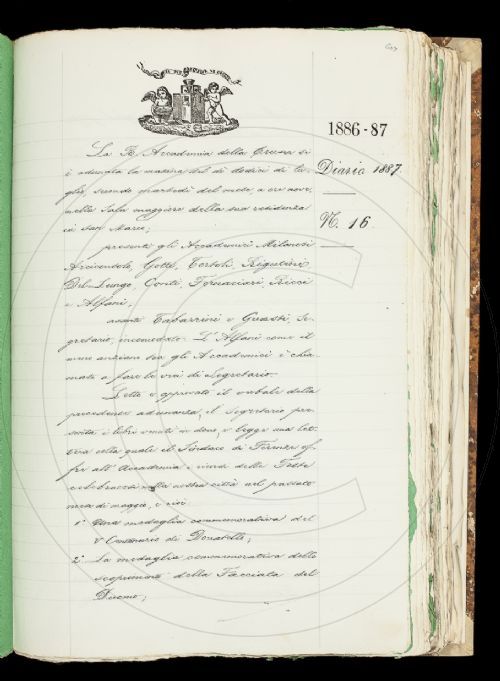 1886-87
Diario 1887.
N. 16
La R. Accademia della Crusca si
è adunata la mattina del dì dodici di lu-
glio, secondo martedì del mese, a ore nove,
nella Sala maggiore della sua residenza
in San Marco;
presenti gli Accademici Milanesi
Arciconsolo, Gotti, Tortoli, Rigutini,
Del-Lungo, Conti, Fornaciari, Ricci
e Alfani;
assenti Tabarrini e Guasti, Se-
gretario, incomodato. L'Alfani come il
meno anziano tra gli Accademici è chia-
mato a fare le veci di Segretario.
Letto e approvato il verbale della
precedente adunanza, il Segretario pre-
senta i libri venuti in dono, e legge una let-
tera colla quale il Sindaco di Firenze of-
fre all'Accademia i ricordi delle Feste
celebratesi nella nostra città nel passato
mese di maggio, e cioè:
1º Una medaglia commemorativa del
V Centenario di Donatello;
2º La medaglia commemorativa dello
scoprimento della Facciata del
Duomo;